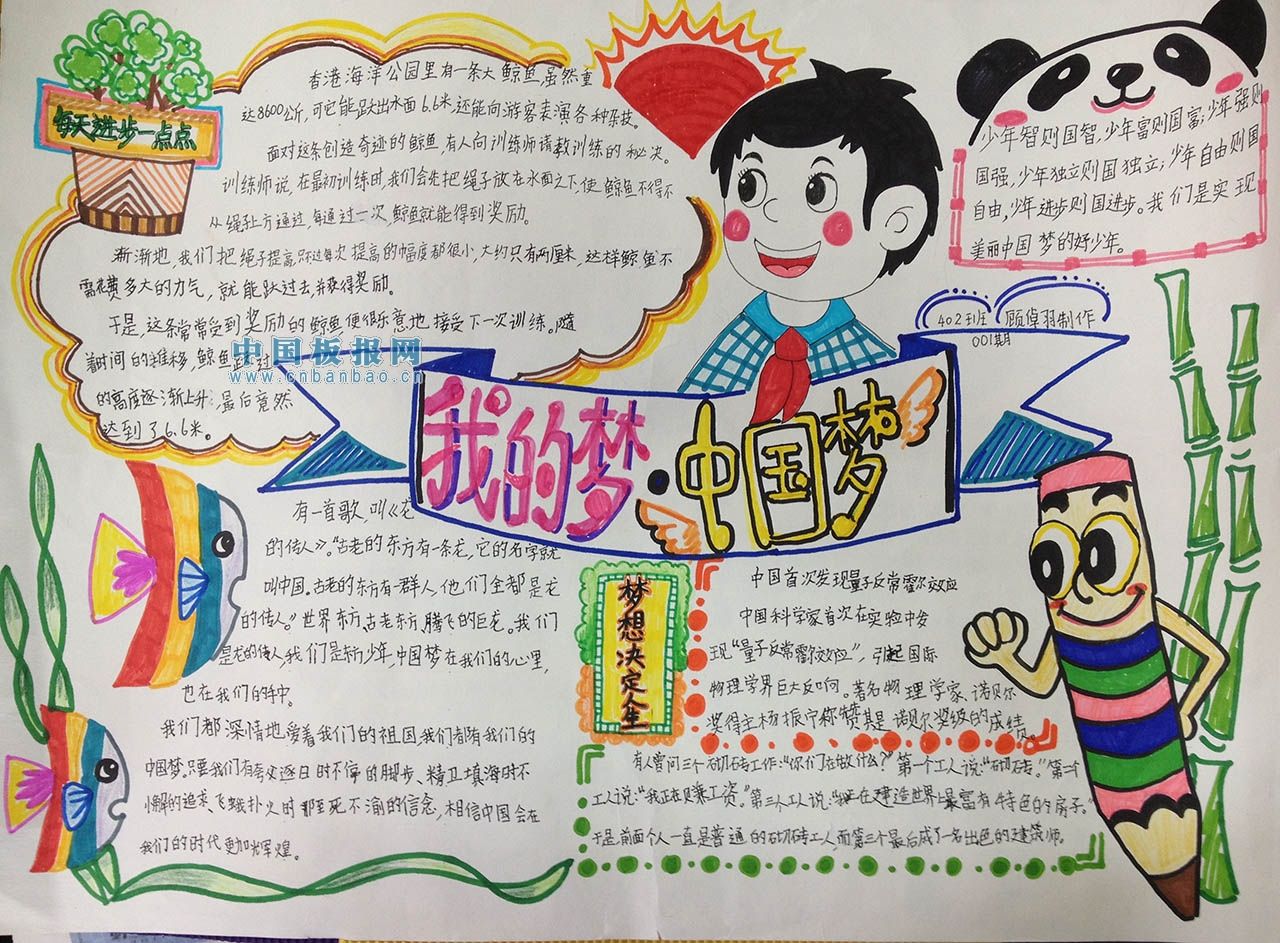 每天进步一点点
香港海洋公园里有一条大鲸鱼,虽然重
达8600公斤,可它能跃出水面6.6米,还能向游客表演各种杂技。
面对这条创造奇迹的鲸鱼,有人向训练师请教训练的秘决。
训练师说,在最初训练时,我们会先把绳子放在水面之下,使鲸鱼不得不
从绳子上方通过,每通过一次,鲸鱼就能得到奖励。
渐渐地,我们把绳子提高,跃过每次提高的幅度都很小,大约只有两厘米,这样鲸鱼不
需花费多大的力气,就能跃过去,并获得奖励。
于是这条常常受到奖励的鲸鱼便很乐意地接受下一次训练。随
着时间的推移,鲸鱼跃过
的高度逐渐上升,最后竟然
达到了6.6米。
中国板报网
www.cnbanbao.cn
少年智则国智,少年富则国富;少年强则
国强,少年独立则国独立;少年自由则国
自由,少年进步则国进步。我们是实现
美丽中国梦的好少年。
402班 顾倬羽制作
001期
我的梦·中国梦
有一首歌,叫《龙
的传人》。“古老的东方有一条龙,它的名字就
叫中国。古老的东方有一群人,他们全都是龙
的传人。”世界东方,古老东方,腾飞的巨龙。我们
是龙的传人,我们是新少年,中国梦在我们的心里,
也在我们的手中。
我们都深情地爱着我们的祖国,我们都有我们的
中国梦。只要我们有夸父逐日时不停的脚步、精卫填海时不
懈的追求、飞蛾扑火时那至死不渝的信念,相信中国会在
我们的时代更加辉煌。
梦想决定人生
中国首次发现量子反常霍尔效应
中国科学家首次在实验中发
现“量子反常霍尔效应”,引起国际
物理学界巨大反响。著名物理学家、诺贝尔
奖得主杨振宁称赞其是诺贝尔奖级的成绩。
有人曾问三个砌砖工作:“你们在做什么?”第一个工人说:“砌砖。”第二个
工人说:“我正在赚工资。”第三人工人说:“我正在建造世界上最富有特色的房子。”
于是前面个人一直是普通的砌砖工人,而第三个最后成了一名出色的建筑师。